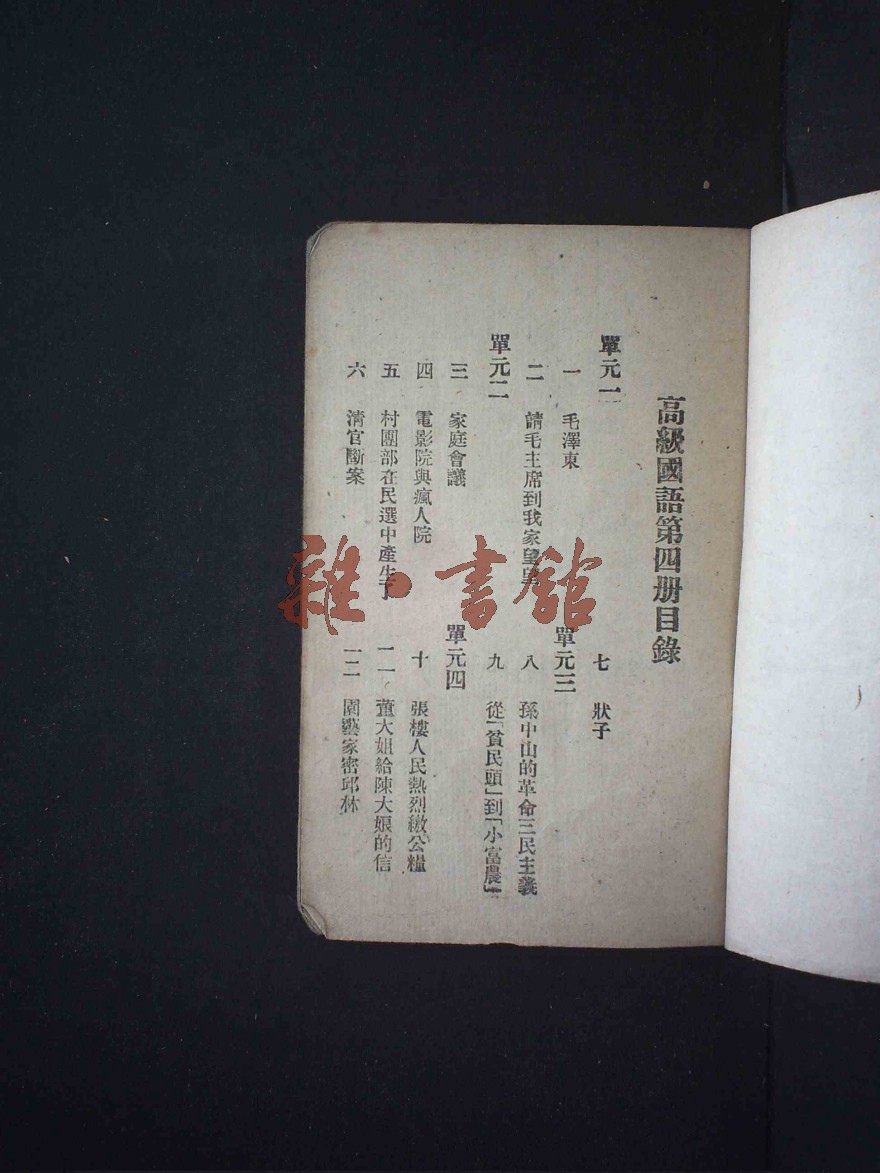 高級國語第四册目錄
單元一
一 毛澤東
二 請毛主席到我家望望
單元二
三 家庭會議
四 電影院與瘋人院
五 村團部在民選中產生了
六 清官斷案
七 狀子
單元三
八 孫中山的革命三民主義
九 從「貧民頭」到「小富農」
單元四
十 張樓人民熱烈繳公糧
一一 董大姐給陳大娘的信
一二 園藝家密邱林
雜·書館